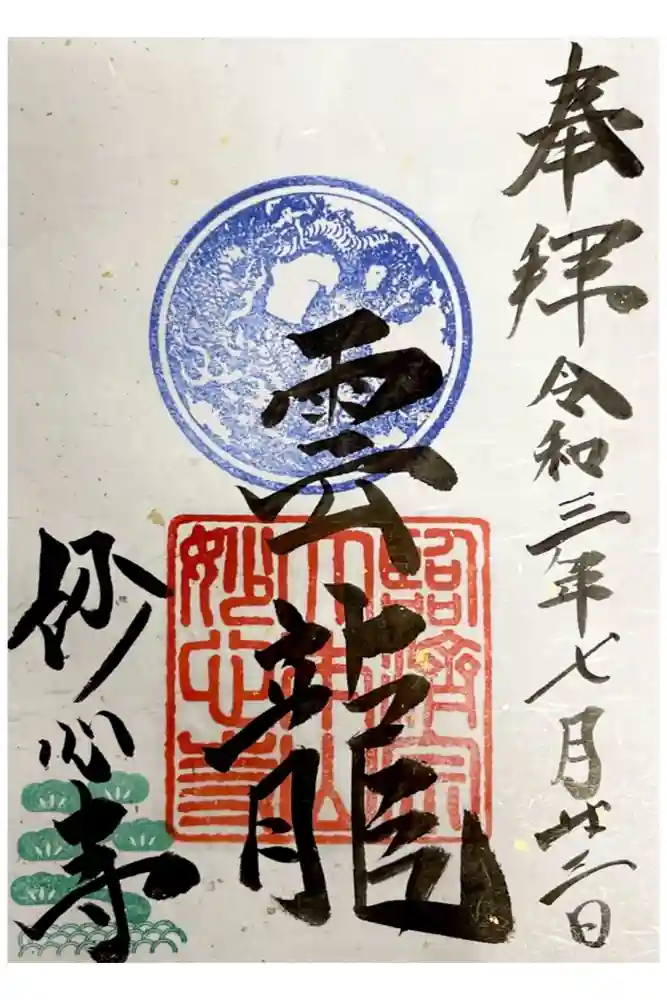 奉拝
令和三年七月廿二日
雲龍
妙心寺
臨濟宗
大本山
妙心寺